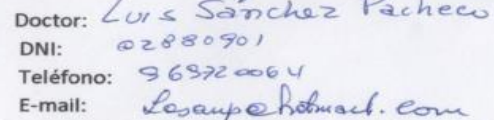 Doctor: Luis Sánchez Pacheco
DNI: 02880901
Teléfono: 969720064
E-mail: Losanp@hotmail.com